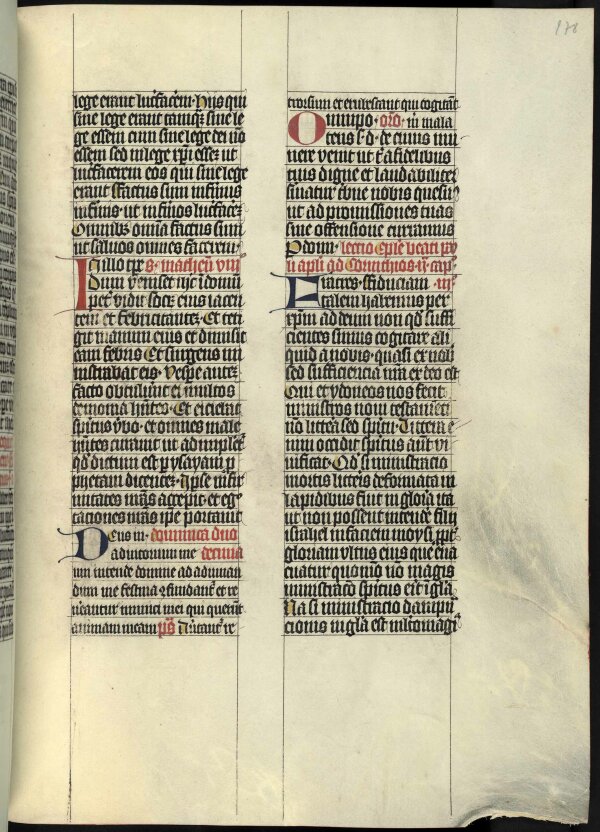 lege erant luc̃facem̃. Hijs qui
sine lege erant tamq̃ sine le
ge essem cum sine lege dei nō
essem sed in lege xp̄i esseꝫ ut
luc̃facerem eos qui sine lege
erant ffactus sum infirmis
infirm̃. ut infirmos luc̃faceꝫ
Omnibus omīa factus sum
ut saluos omnes facerem.
In illo tp̄e s. matheū viij
Dum venisset ih̄c ī domū
pet̃ vidit socꝝ eius iacen
tem et febricitanteꝫ. Et teti
git manum eius et dimisit
eam febris. Et surgens mi
nistrabat eis. Vesp̃e auteꝫ
facto obtulerūt ei multos
demonia hñtes. Et eiciebat
spiritus v̄bo. et omnes male
hñtes curauit ut adimpleret̃
qd̄ dictum est p ysayam p
phetam dicenteꝫ. Ip̄e infir
mitates nr̄as accepit. et eg
tationes nr̄as ip̄e portauit
Deus in. dominica duo
adiutorium me decima
um intende domine ad adiuuan
dum me festina 9fundant̃ et re
u̾eantur inimici mei qui querūt
animam meam p̄s Au̾tant̃ re
trorsum et erubescant qui cogitāt
Omnipo. or̄o. m̄ mala
tens s. d. de cuius mu
nere venit ut t̾ a fidelibus
tuis digne et laudabilit̾
s̾uiatur t̾bue nobis quesūꝫ
ut ad promissiones tuas
sine offensione curramus
P dom̄. lectio eple beati pau
li apl̄i ad Corinthios ij. cap̄
Fratres. ffiduciam. iij.
talem habemus per
xp̄m ad deum non qd̄ suffi
cientes simus cogitare ali
quid a nobis. quasi ex nob̄
sed sufficiencia nr̄a ex deo est
Qui et ydoneos nos fecit
ministros noui testamēti
nō litt̾a sed spiritu. Littera e
nim occidit spiritus aūt vi
uificat. Qd̄ si ministracio
mortis litteris deformata in
lapidibus fuit in glorīa ita
ut non possent intendere filii
israhel in faciem moysi ppt̾
gloriam vultus eius que eua
cuatur quomō nō magis
ministracō spiritus erit ī gl̄a
Nam si ministracio dampna
cionis in gl̄a est multomagis